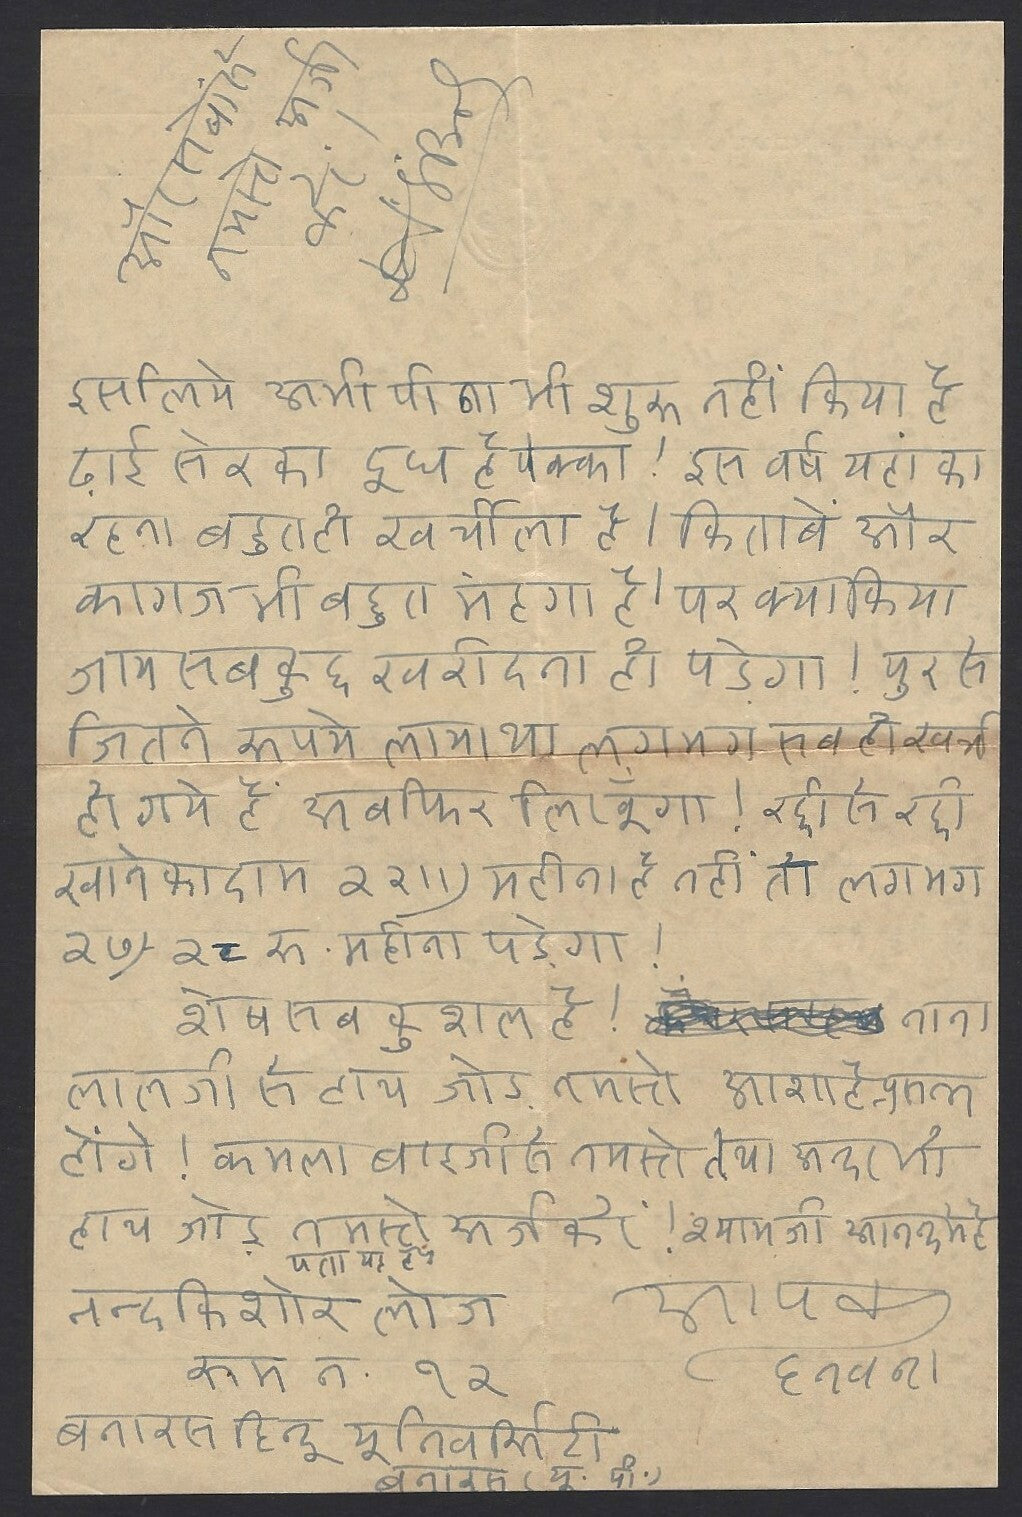 और सबको
नमस्ते अर्ज
करें.
इसलिये अभी पीना भी शुरू नहीं किया है
ढ़ाई सेर का दूध है पक्का! इस वर्ष यहां का
रहना बहुत ही खर्चीला है। किताबें और
कागज भी बहुत मंहगा है। पर क्या किया
जाय सब कुछ खरीदना ही पड़ेगा! पुर से
जितने रूपये लाया था लगभग सब ही खर्च
हो गये हैं अब फिर लिखूँगा! रद्दी से रद्दी
खाने का दाम २२॥) महीना है नहीं तो लगभग
२७)-२८ रू. महीना पड़ेगा!
शेष सब कुशल है! नाना
लाल जी से हाथ जोड़ नमस्ते आशा है प्रसन्न
होंगे! कमला बाई जी से नमस्ते तथा अन्दर भी
हाथ जोड़ नमस्ते अर्ज करें! श्याम जी आनन्द में है
पता यह है
नन्दकिशोर लोज
रूम न. १२
बनारस हिन्दू यूनिवर्सिटी
बनारस (यू. पी.)
आपका